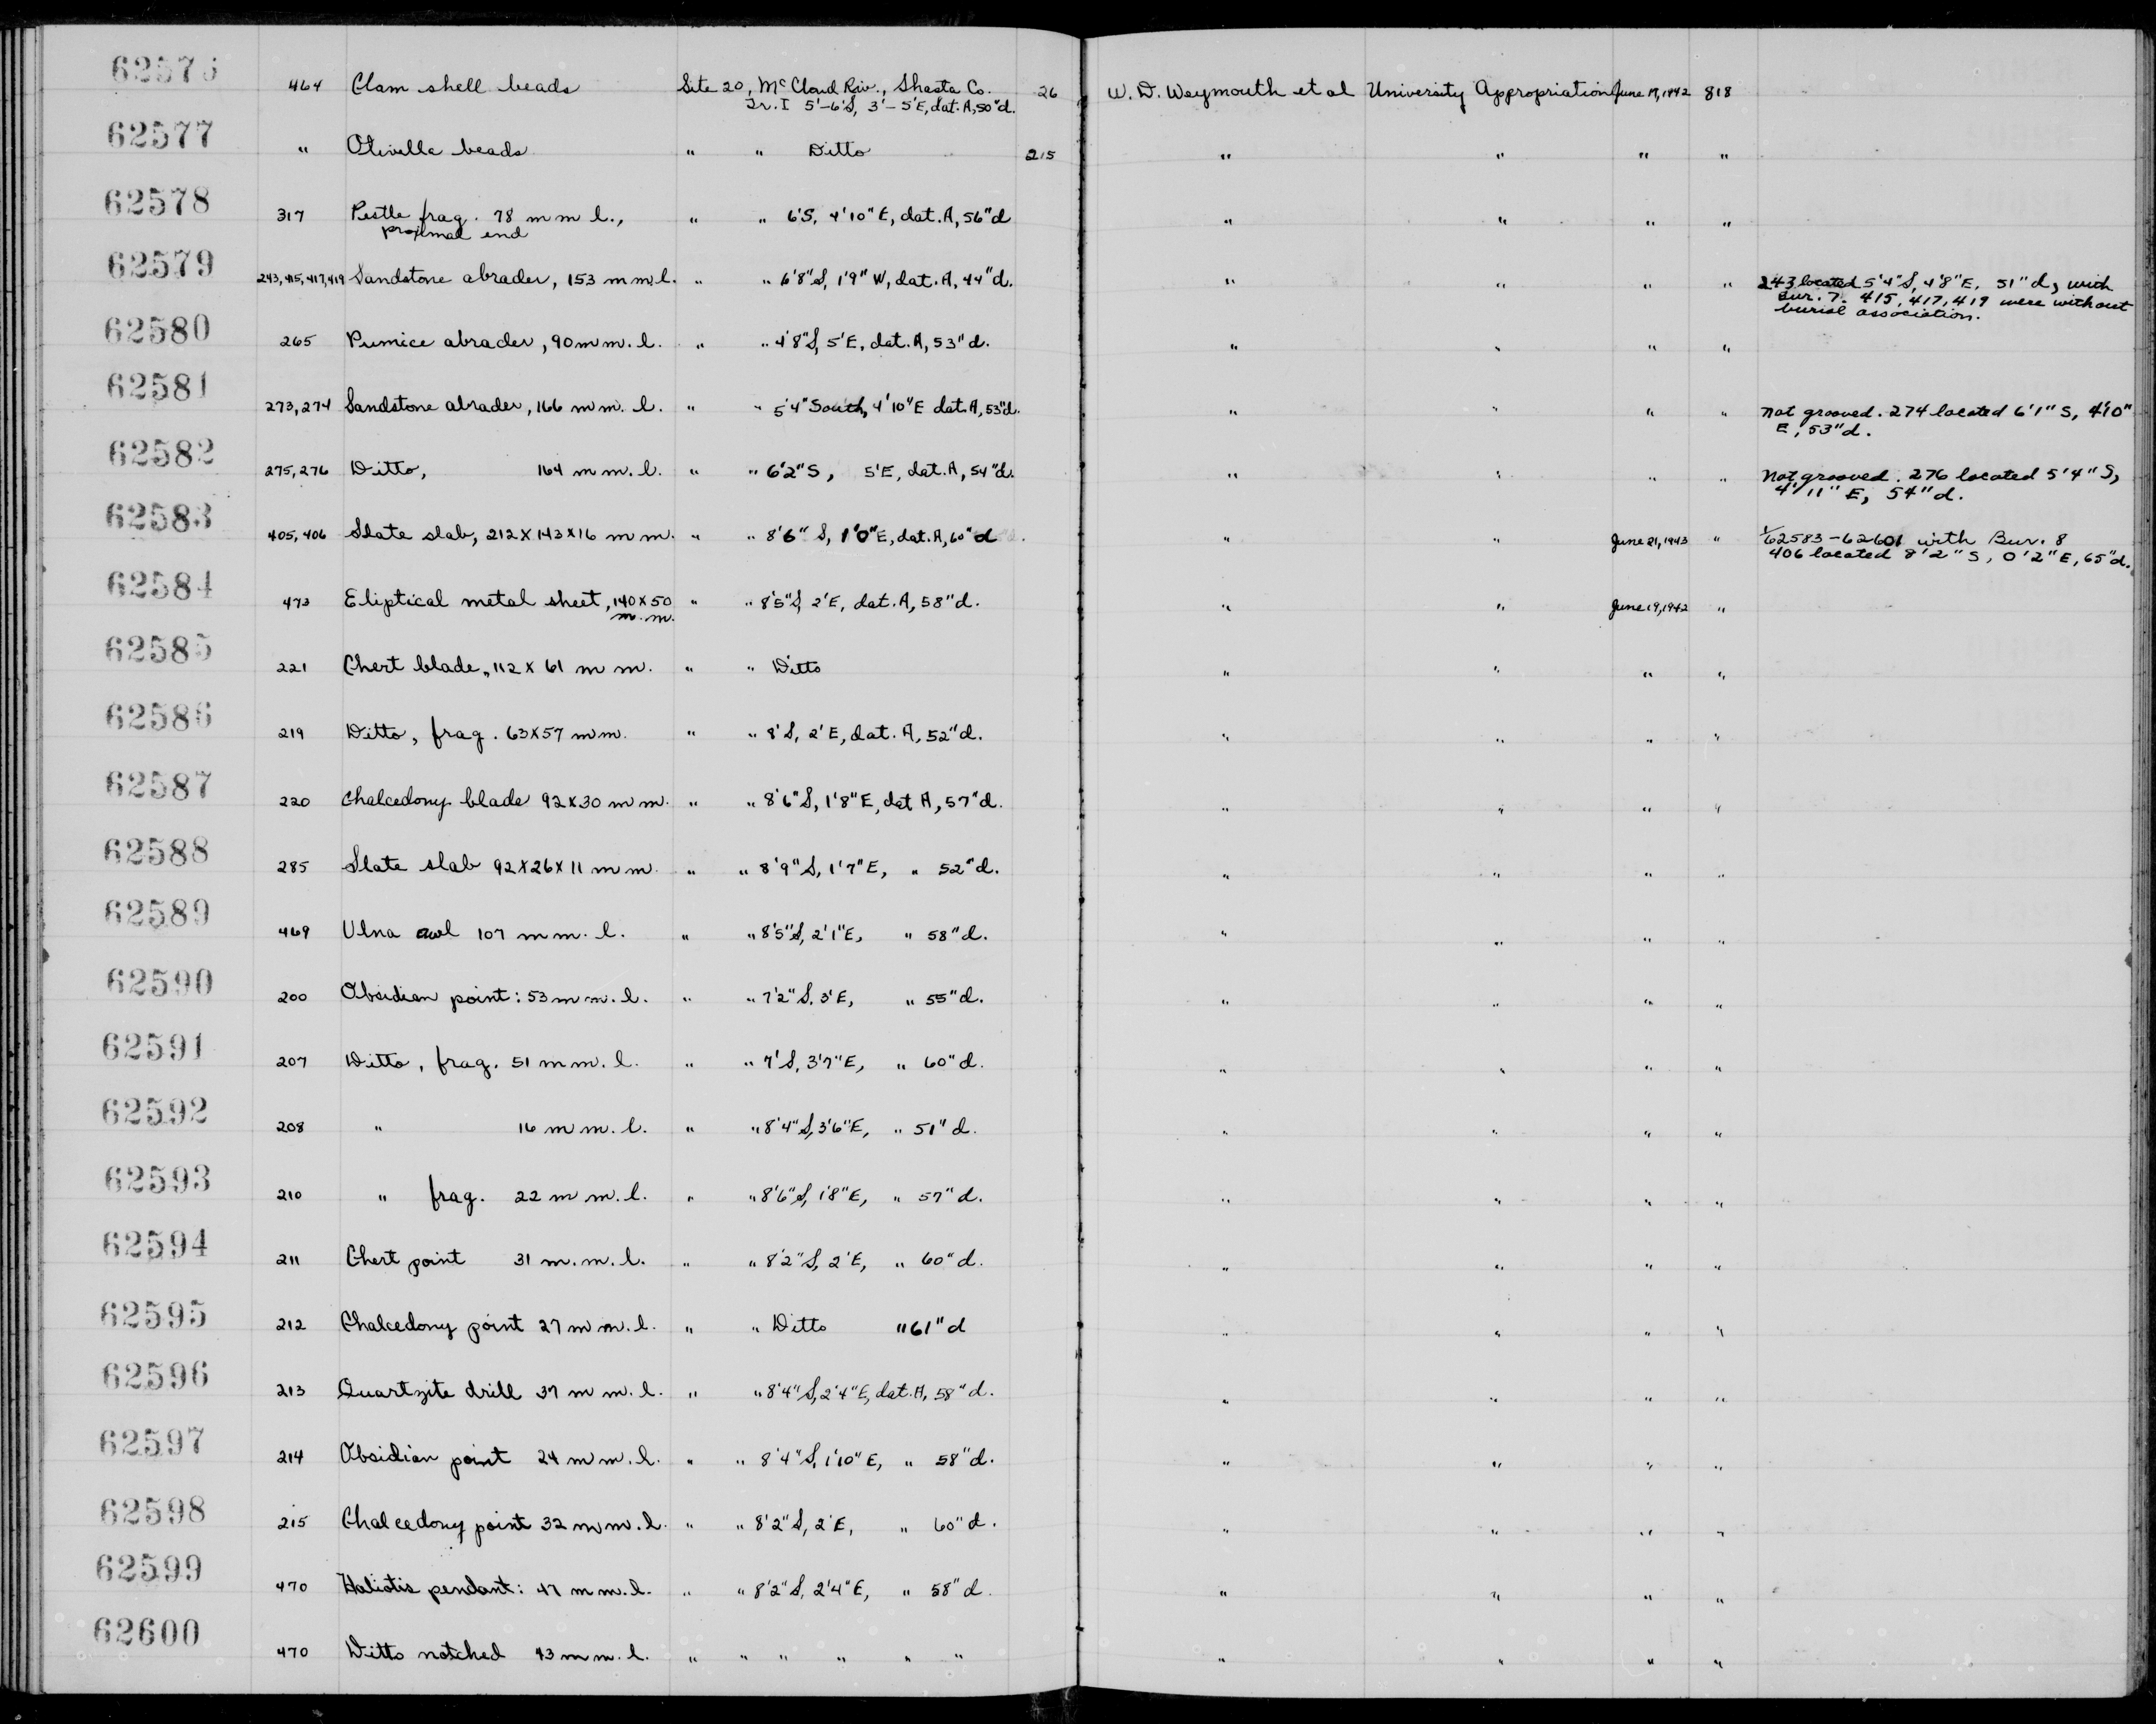 62576 464 Clam shell beads Site 20, McCloud Riv., Shasta Co. 26 W. D. Weymouth et al University Appropriation June 19, 1942 818
Tr. I 5'-6'S, 3'-5'E, dat. A, 50"d.
62577 " Olivella beads " " Ditto 215 " " " "
62578 317 Pestle frag. 78 m m l., " " 6'S, 4'10"E, dat. A, 56"d " " " "
proximal end
62579 243,415,417,419 Sandstone abrader, 153 m m. l. " " 6'8"S, 1'9" W, dat. A, 44"d. " " " " 243 located 5'4"S, 4'8"E, 51"d, with
Bur. 7. 415, 417, 419 were without
burial association.
62580 265 Pumice abrader, 90 m m. l. " " 4'8"S, 5'E, dat. A, 53"d. " " " "
62581 273,274 Sandstone abrader, 166 m m. l. " " 5'4" South, 4'10"E dat. A, 53"d. " " " " Not grooved. 274 located 6'1"S, 4'10"
E, 53"d.
62582 275,276 Ditto, 164 m m. l. " " 6'2"S, 5'E, dat. A, 54"d. " " " " Not grooved. 276 located 5'4"S,
4'11"E, 54"d.
62583 405,406 Slate slab, 212 x 143 x 16 m m. " " 8'6" S, 1'0"E, dat. A, 60"d " " June 21, 1943 " 1/62583-62601 with Bur. 8
406 located 8'2"S, 0'2"E, 65"d.
62584 473 Eliptical metal sheet, 140 x 50 " " 8'5"S, 2'E, dat. A, 58"d. " " June 19, 1942 "
m. m.
62585 221 Chert blade, 112 x 61 m m. " " Ditto " " " "
62586 219 Ditto, frag. 63 x 57 m m. " " 8'S, 2'E, dat. A, 52"d. " " " "
62587 220 Chalcedony blade 92 x 30 m m. " " 8'6"S, 1'8"E, dat A, 57"d. " " " "
62588 285 Slate slab 92 x 26 x 11 m m. " " 8'9"S, 1'7"E, " 52"d. " " " "
62589 469 Ulna awl 107 m m. l. " " 8'5"S, 2'1"E, " 58"d. " " " "
62590 200 Obsidian point: 53 m m. l. " " 7'2"S, 3'E, " 55"d. " " " "
62591 207 Ditto, frag. 51 m m. l. " " 7'S, 3'7"E, " 60"d. " " " "
62592 208 " 16 m m. l. " " 8'4"S, 3'6"E, " 51"d. " " " "
62593 210 " frag. 22 m m. l. " " 8'6"S, 1'8"E, " 57"d. " " " "
62594 211 Chert point 31 m. m. l. " " 8'2"S, 2'E, " 60"d. " " " "
62595 212 Chalcedony point 27 m m. l. " " Ditto " 61"d " " " "
62596 213 Quartzite drill 37 m m. l. " " 8'4"S, 2'4"E, dat. A, 58"d. " " " "
62597 214 Obsidian point 24 m m. l. " " 8'4"S, 1'10"E, " 58"d. " " " "
62598 215 Chalcedony point 32 m m. l. " " 8'2"S, 2'E, " 60"d. " " " "
62599 470 Haliotis pendant: 47 m m. l. " " 8'2"S, 2'4"E, " 58"d. " " " "
62600 470 Ditto notched 43 m m. l. " " " " " " " " " "